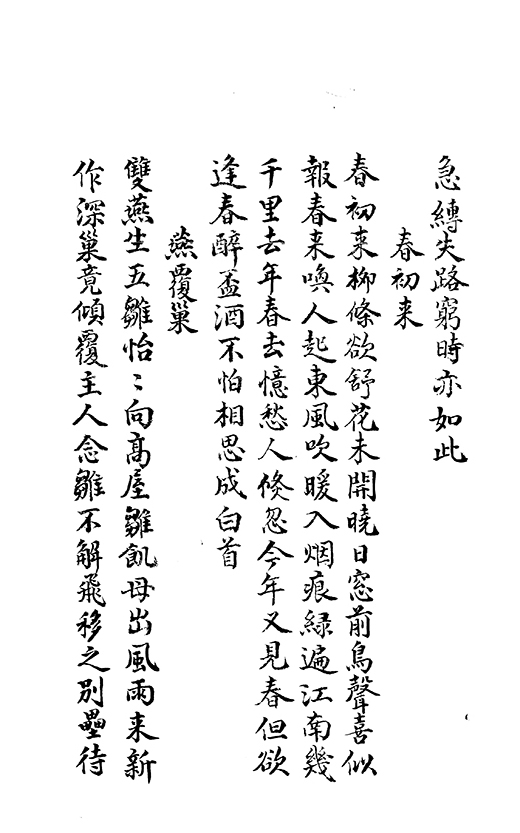 急縛失路窮時亦如此
春初来
春初来柳條欲舒花未開曉日窓前鳥聲喜似
報春来喚人起東風吹暖入烟痕緑遍江南幾
千里去年春去憶愁人倐忽今年又見春但欲
逢春醉盃酒不怕相思成白首
燕覆巢
雙燕生五雛怡〻向高屋雛飢母出風雨来新
作深巢竟傾覆主人念雛不解飛移之別壘待